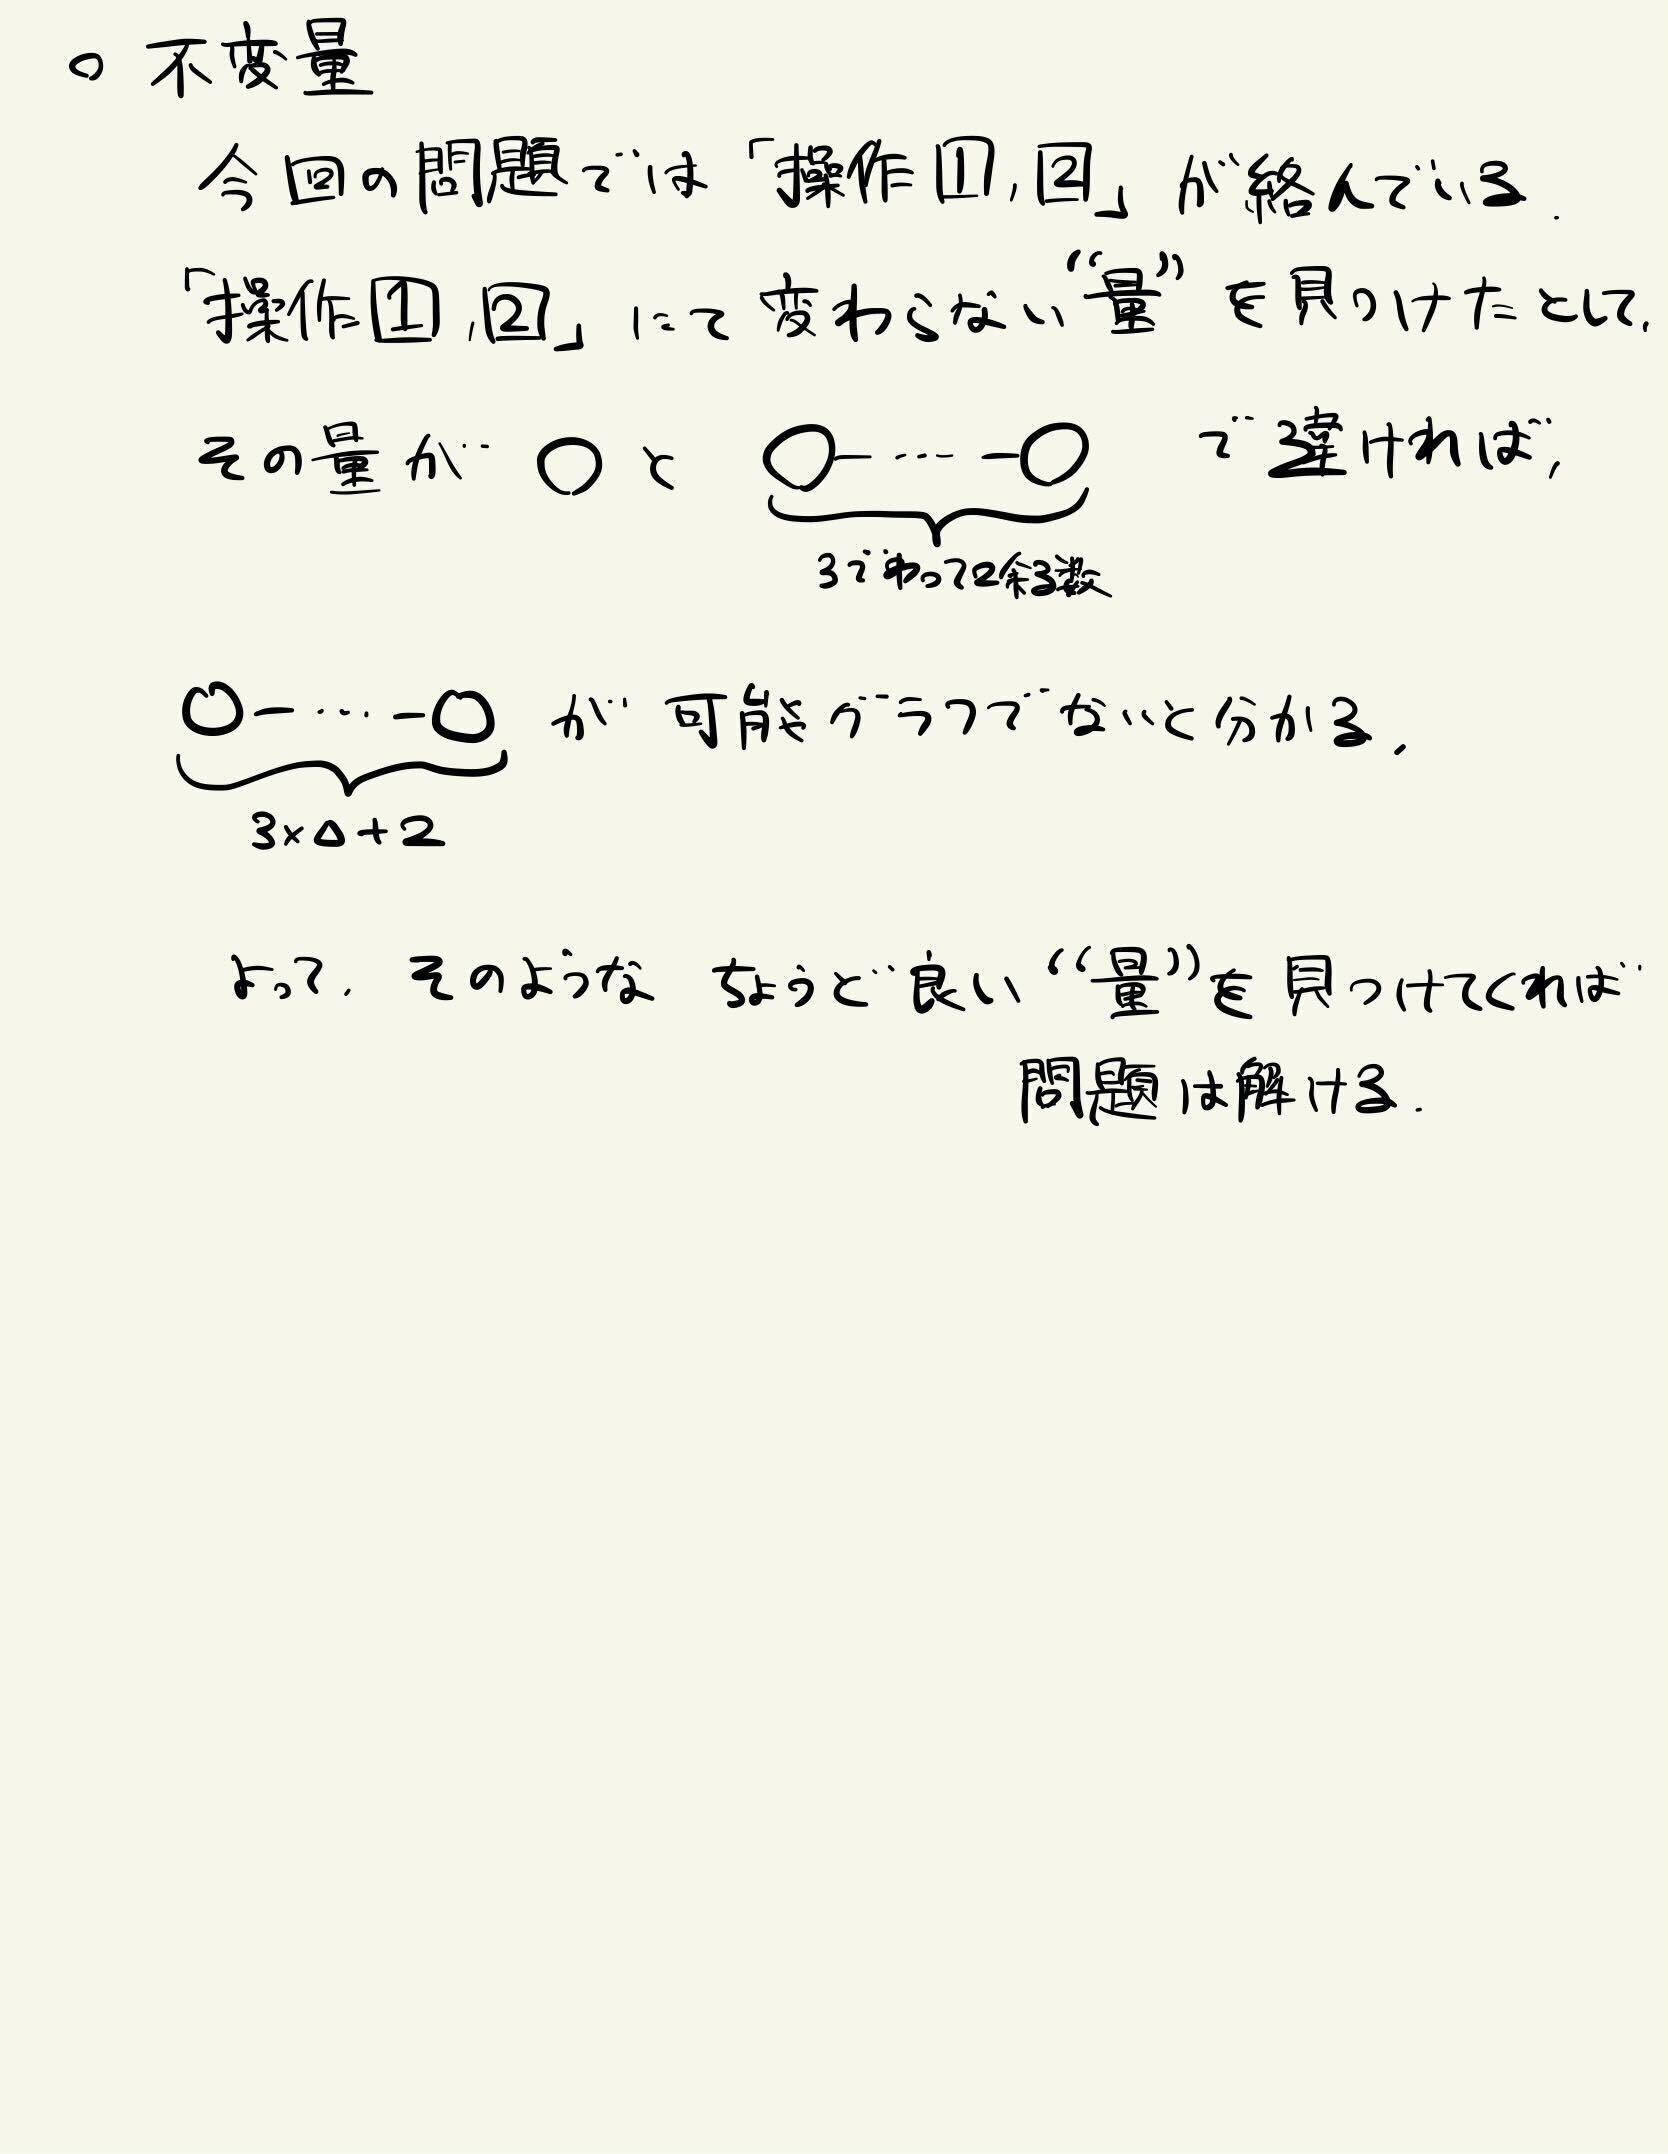 ○ 不変量
今回の問題では「操作1, 2」が絡んでいる.
「操作1, 2」にて変わらない“量”を見つけたとして,
その量が ○ と ○-…-○ で違ければ,
3でわって2余る数
○-…-○ が可能グラフでないと分かる.
3×△+2
よって, そのような ちょうど良い “量”を 見つけてくれば
問題は解ける.